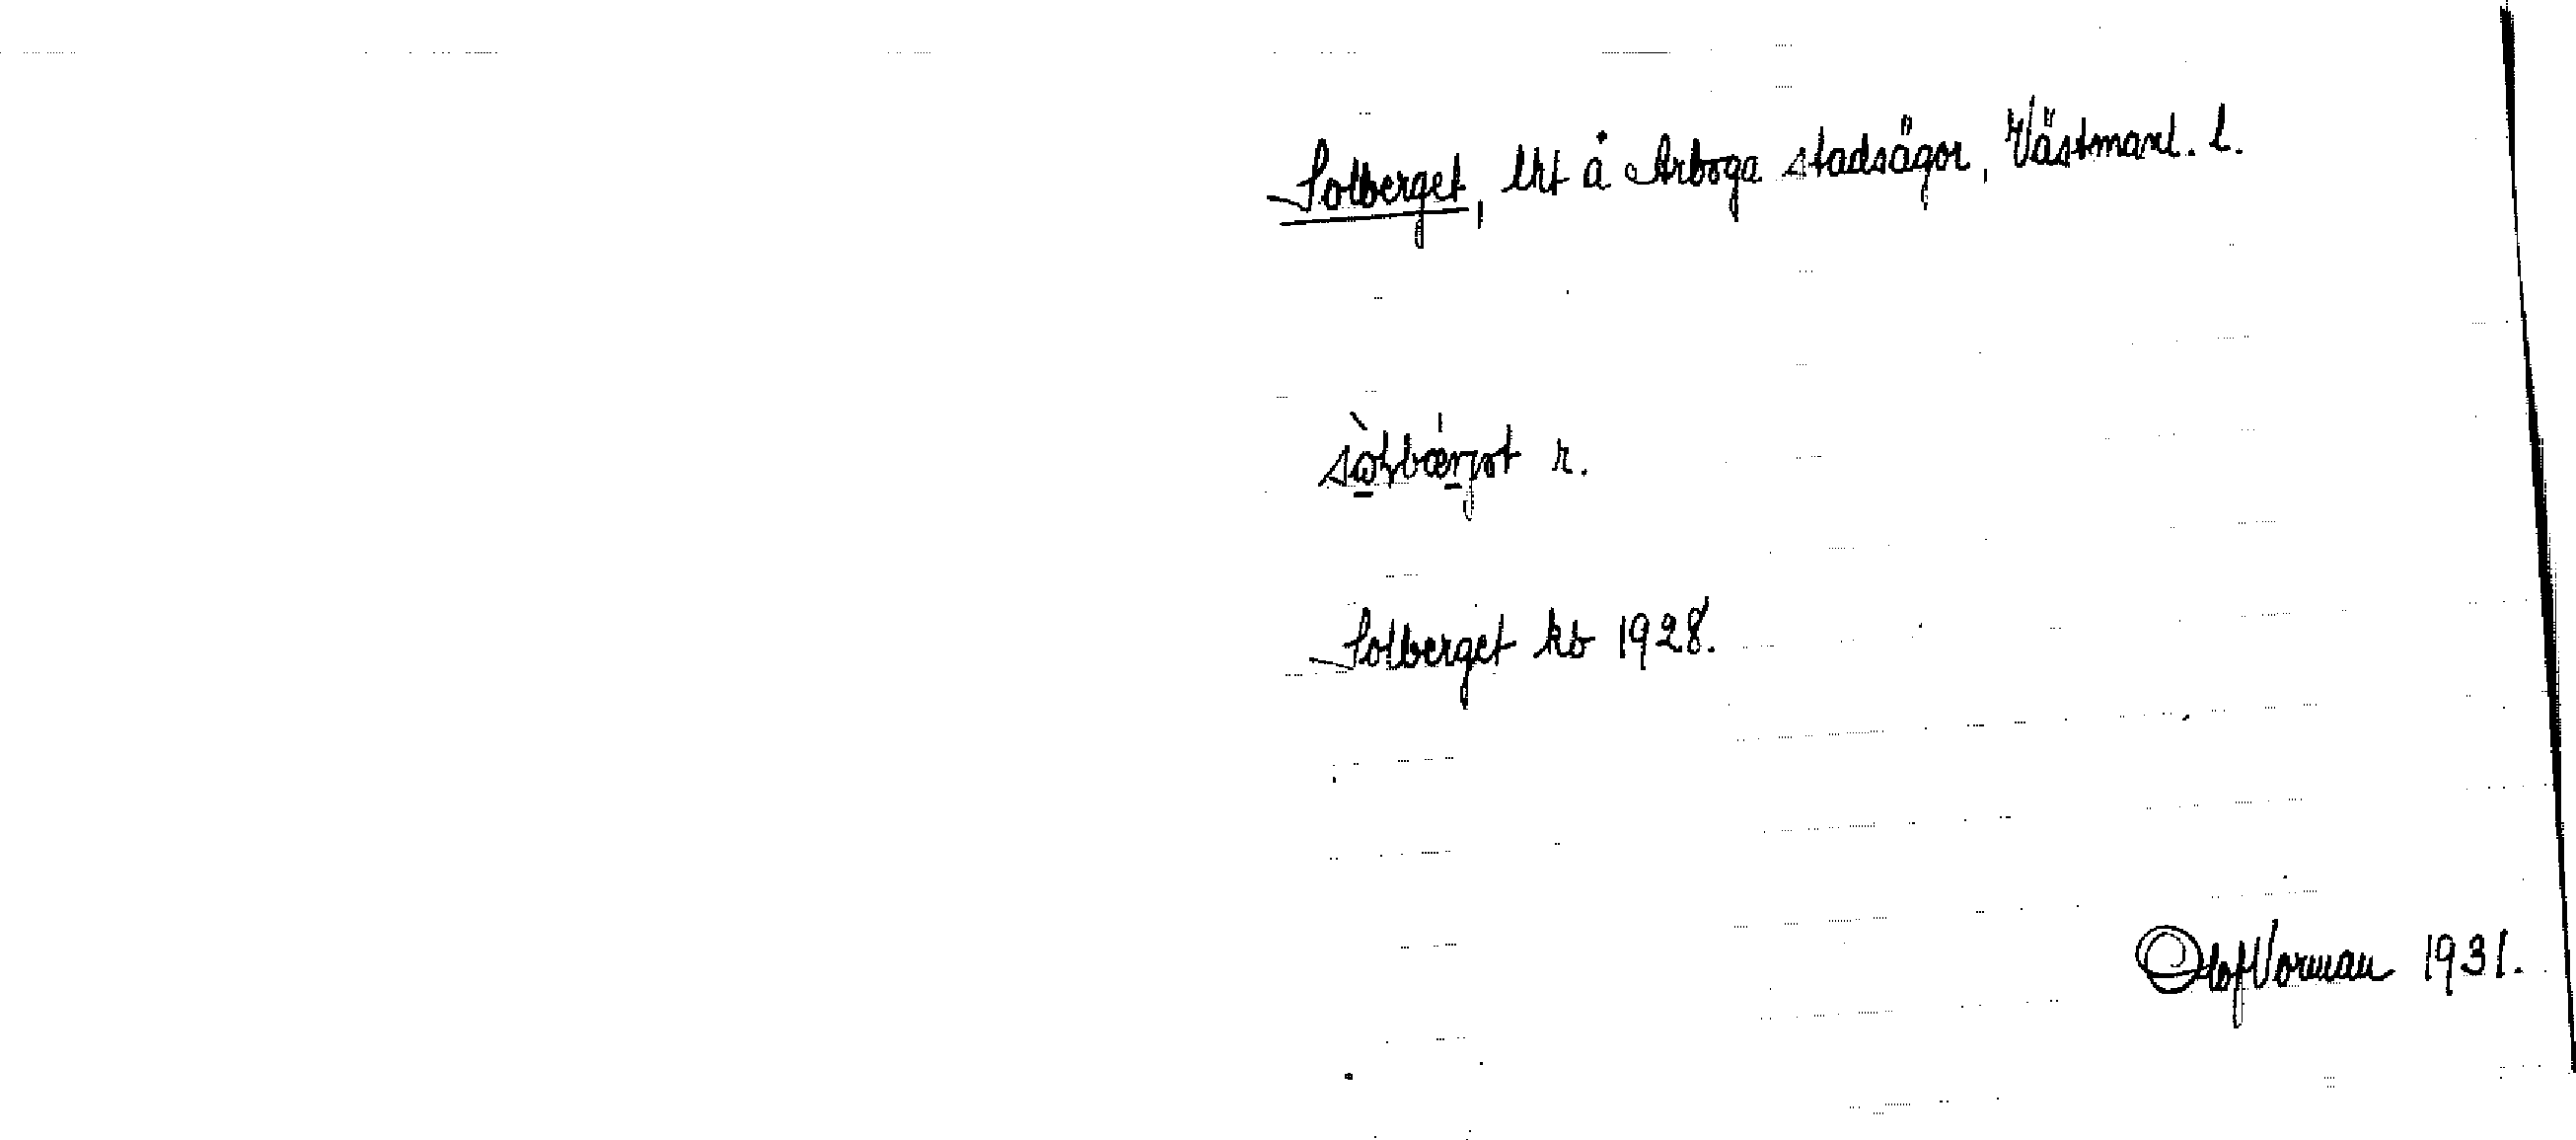 Solberget, lht å Arboga stadsägor, Västmanl. l.
sòlbærjət r.
Solberget kb 1928.
Olof Vorman 1931.